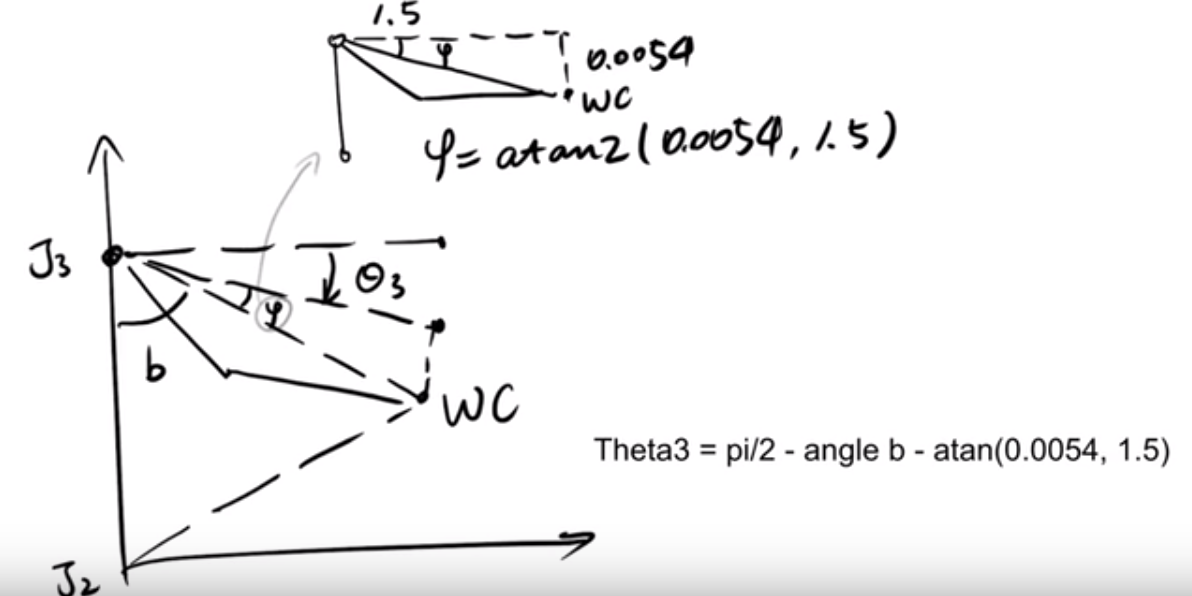 1.5
φ
0.0054
WC
φ = atan2(0.0054, 1.5)
J3
θ3
φ
b
WC
Theta3 = pi/2 - angle b - atan(0.0054, 1.5)
J2